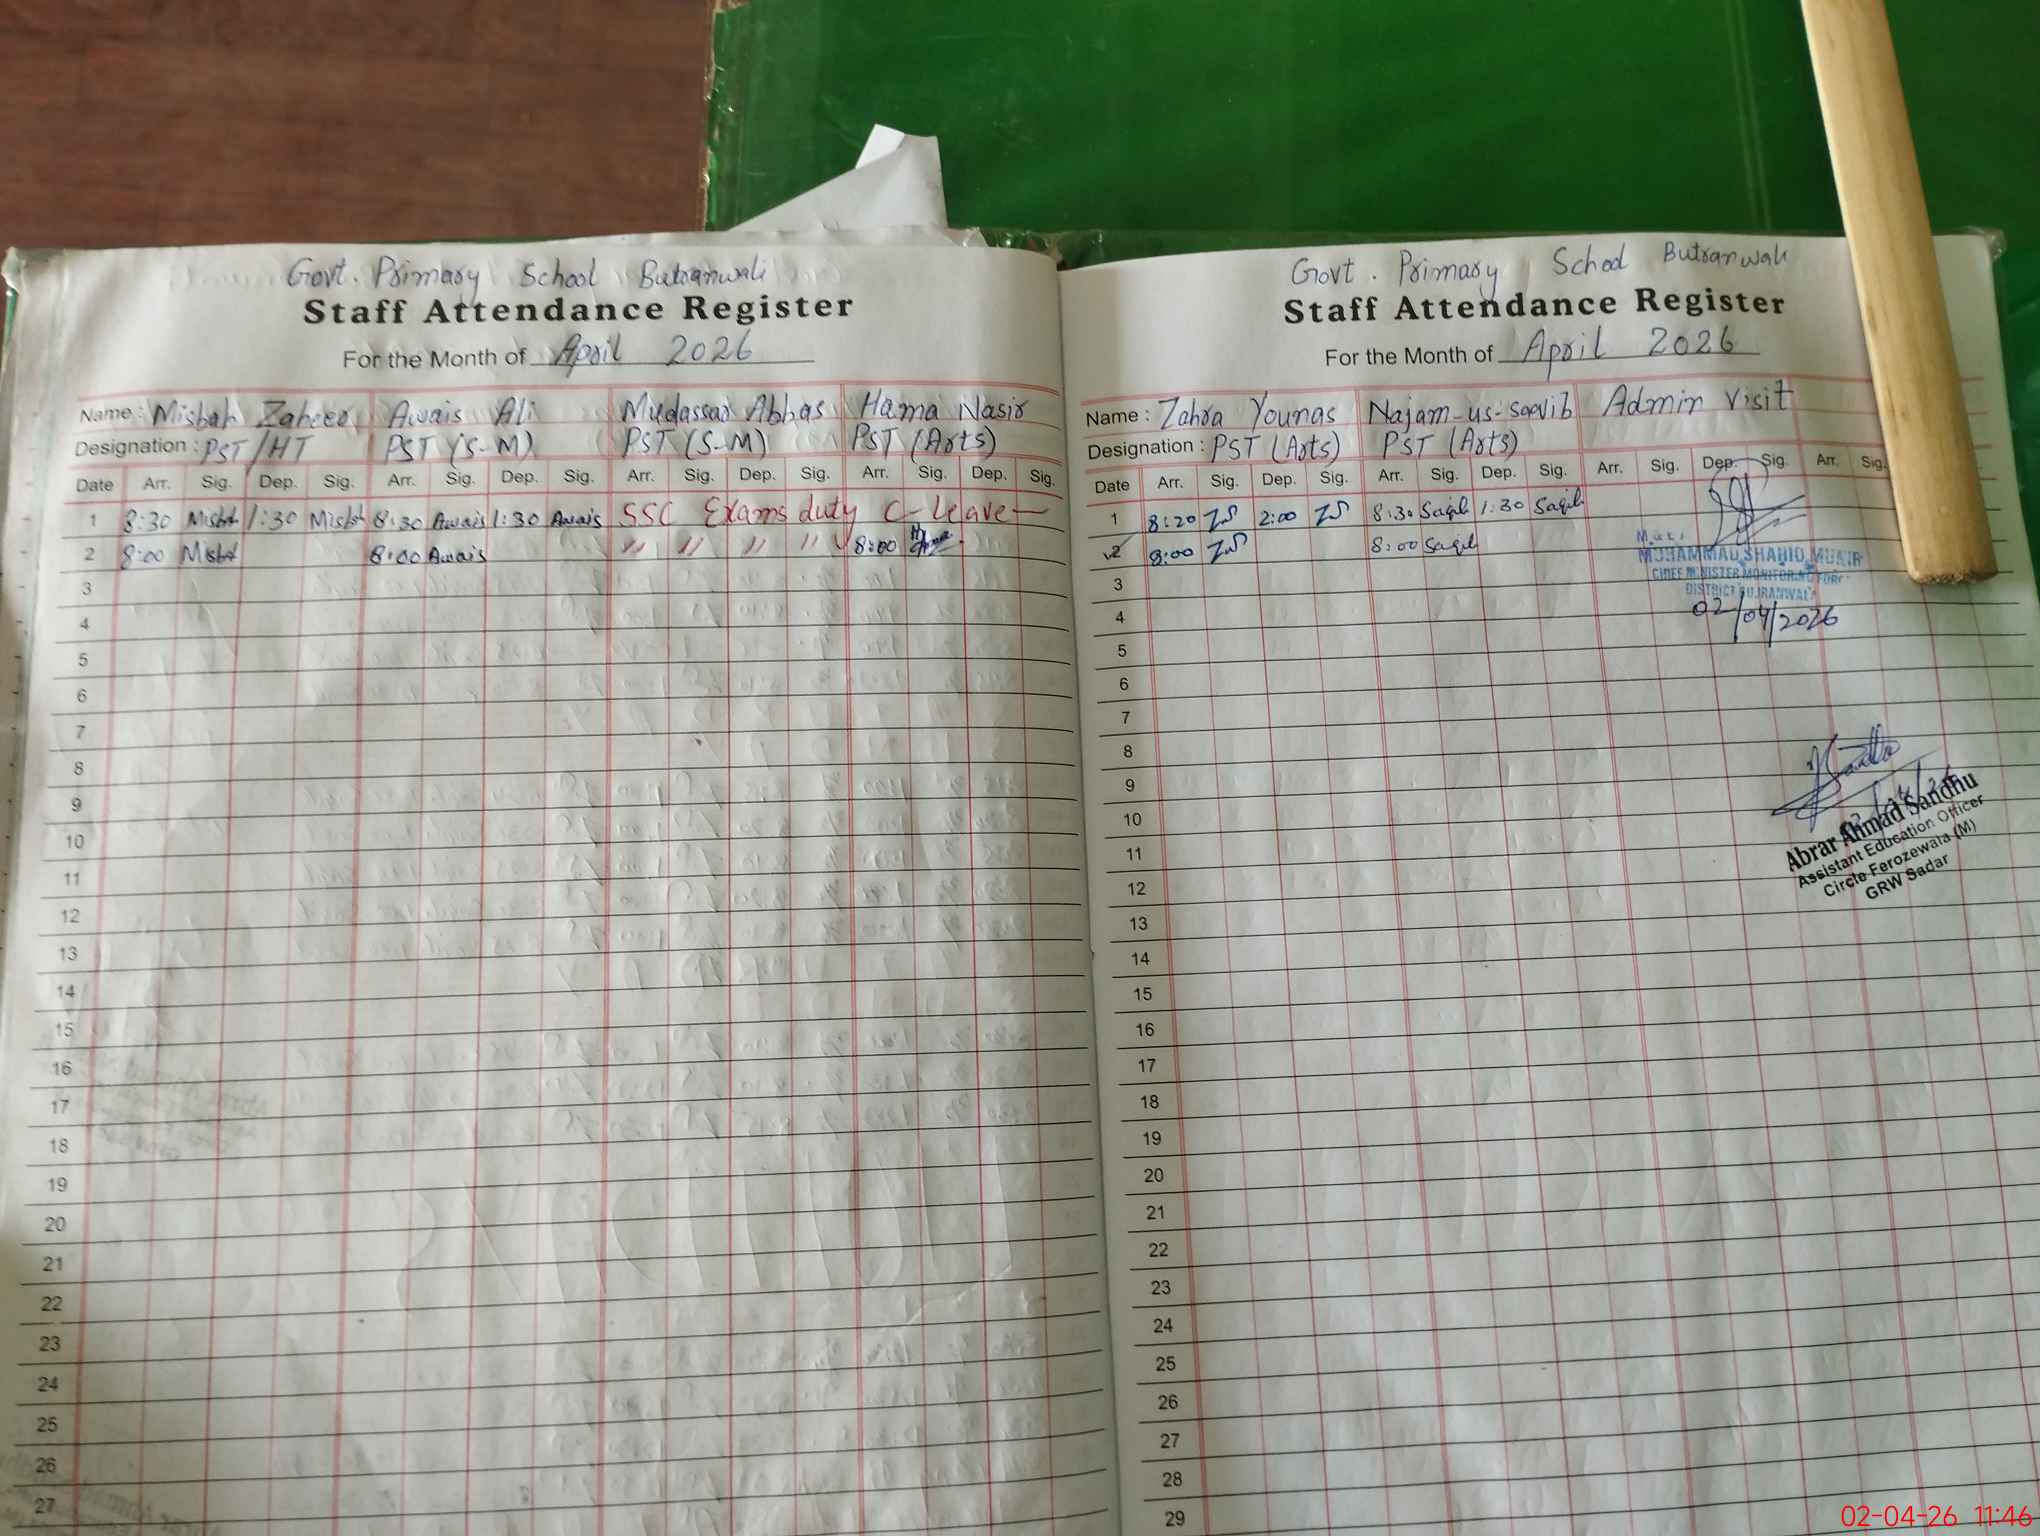 Govt. Primary School Butranwali
Staff Attendance Register
For the Month of April 2026
Name: Misbah Zaheer Awais Ali Mudassar Abbas Hama Nasir
Designation: PST/HT PST (S-M) PST (S-M) PST (Arts)
Date Arr. Sig. Dep. Sig. Arr. Sig. Dep. Sig. Arr. Sig. Dep. Sig. Arr. Sig. Dep. Sig.
1 8:30 Misbah 1:30 Misbah 8:30 Awais 1:30 Awais SSC Exams duty C-Leave
2 8:00 Misbah 8:00 Awais " " " " 8:00
3
4
5
6
7
8
9
10
11
12
13
14
15
16
17
18
19
20
21
22
23
24
25
26
27
Govt. Primary School Butranwali
Staff Attendance Register
For the Month of April 2026
Name: Zahra Younas Najam-us-saqib Admin visit
Designation: PST (Arts) PST (Arts)
Date Arr. Sig. Dep. Sig. Arr. Sig. Dep. Sig. Arr. Sig. Dep. Sig. Arr. Sig.
1 8:20 ZS 2:00 ZS 8:30 Saqib 1:30 Saqib
2 8:00 ZS 8:00 Saqib
MUHAMMAD SHAHID MUNIR
CHIEF MINISTER MONITORING FORCE
DISTRICT GUJRANWALA
02/04/2026
3
4
5
6
7
8
9
10
11
12
13
14
15
16
17
18
19
20
21
22
23
24
25
26
27
28
29
Abrar Ahmad Sandhu
Assistant Education Officer
Circle Ferozewala (M)
GRW Sadar
02-04-26 11:46